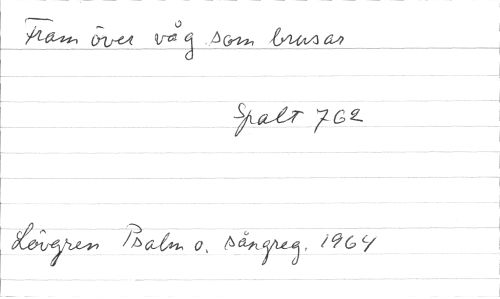 Fram över våg som brusar
Spalt 762
Lövgren Psalm o. sångreg. 1964